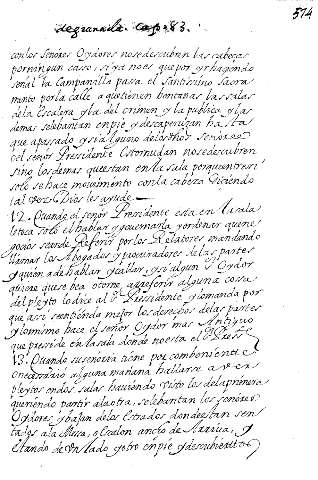 de granada Cap. 83.
574
con los Señores Oydores no se descubren las cabeças
por ningun caso, si ya no es que por yr haçiendo
señal la Campanilla pasa el Santissimo Sacra
mento por la calle a que tienen bentanas las salas
de la Escalera y la del crimen y la publica y las
demas se lebantan en pie y descaperuzan hasta
que a passado y si alguno de los dhos señores
o el señor Presidente Estornudan no se descubren
sino los demas que estan en la sala porque entre si
solo se haçe movimiento con la cabeza diçiendo
tal vez Dios les ayude.
12. Quando el señor Presidente esta en la sala
le toca solo el hablar y governarla y ordenar que ne
goçios se an de Referir por los Relatores mandando
llamar los Abogados y procuradores de las partes
y quien a de hablar y callar, y si algun Sr. Oydor
quiere que se lea o torne a Referir alguna cossa
del pleyto lo diçe al Sr. Presidente y lo manda por
que assi se entiende mejor los derechos de las partes
y lo mismo haçe el señor Oydor mas Antiguo
que preside en la sala donde no esta el Sr. Presste.
13. Quando su señoria tiene por combeniente
o neçessario alguna mañana hallarse a ver
pleytos en dos salas haviendo visto los de la primera
queriendo partir a la otra, se lebantan los señores
Oydores y bajan de los Estrados donde estan sen
tados a la Mesa, o Escalon ancho de Arriva, y
estando de un lado y otro en pie y descubiertos